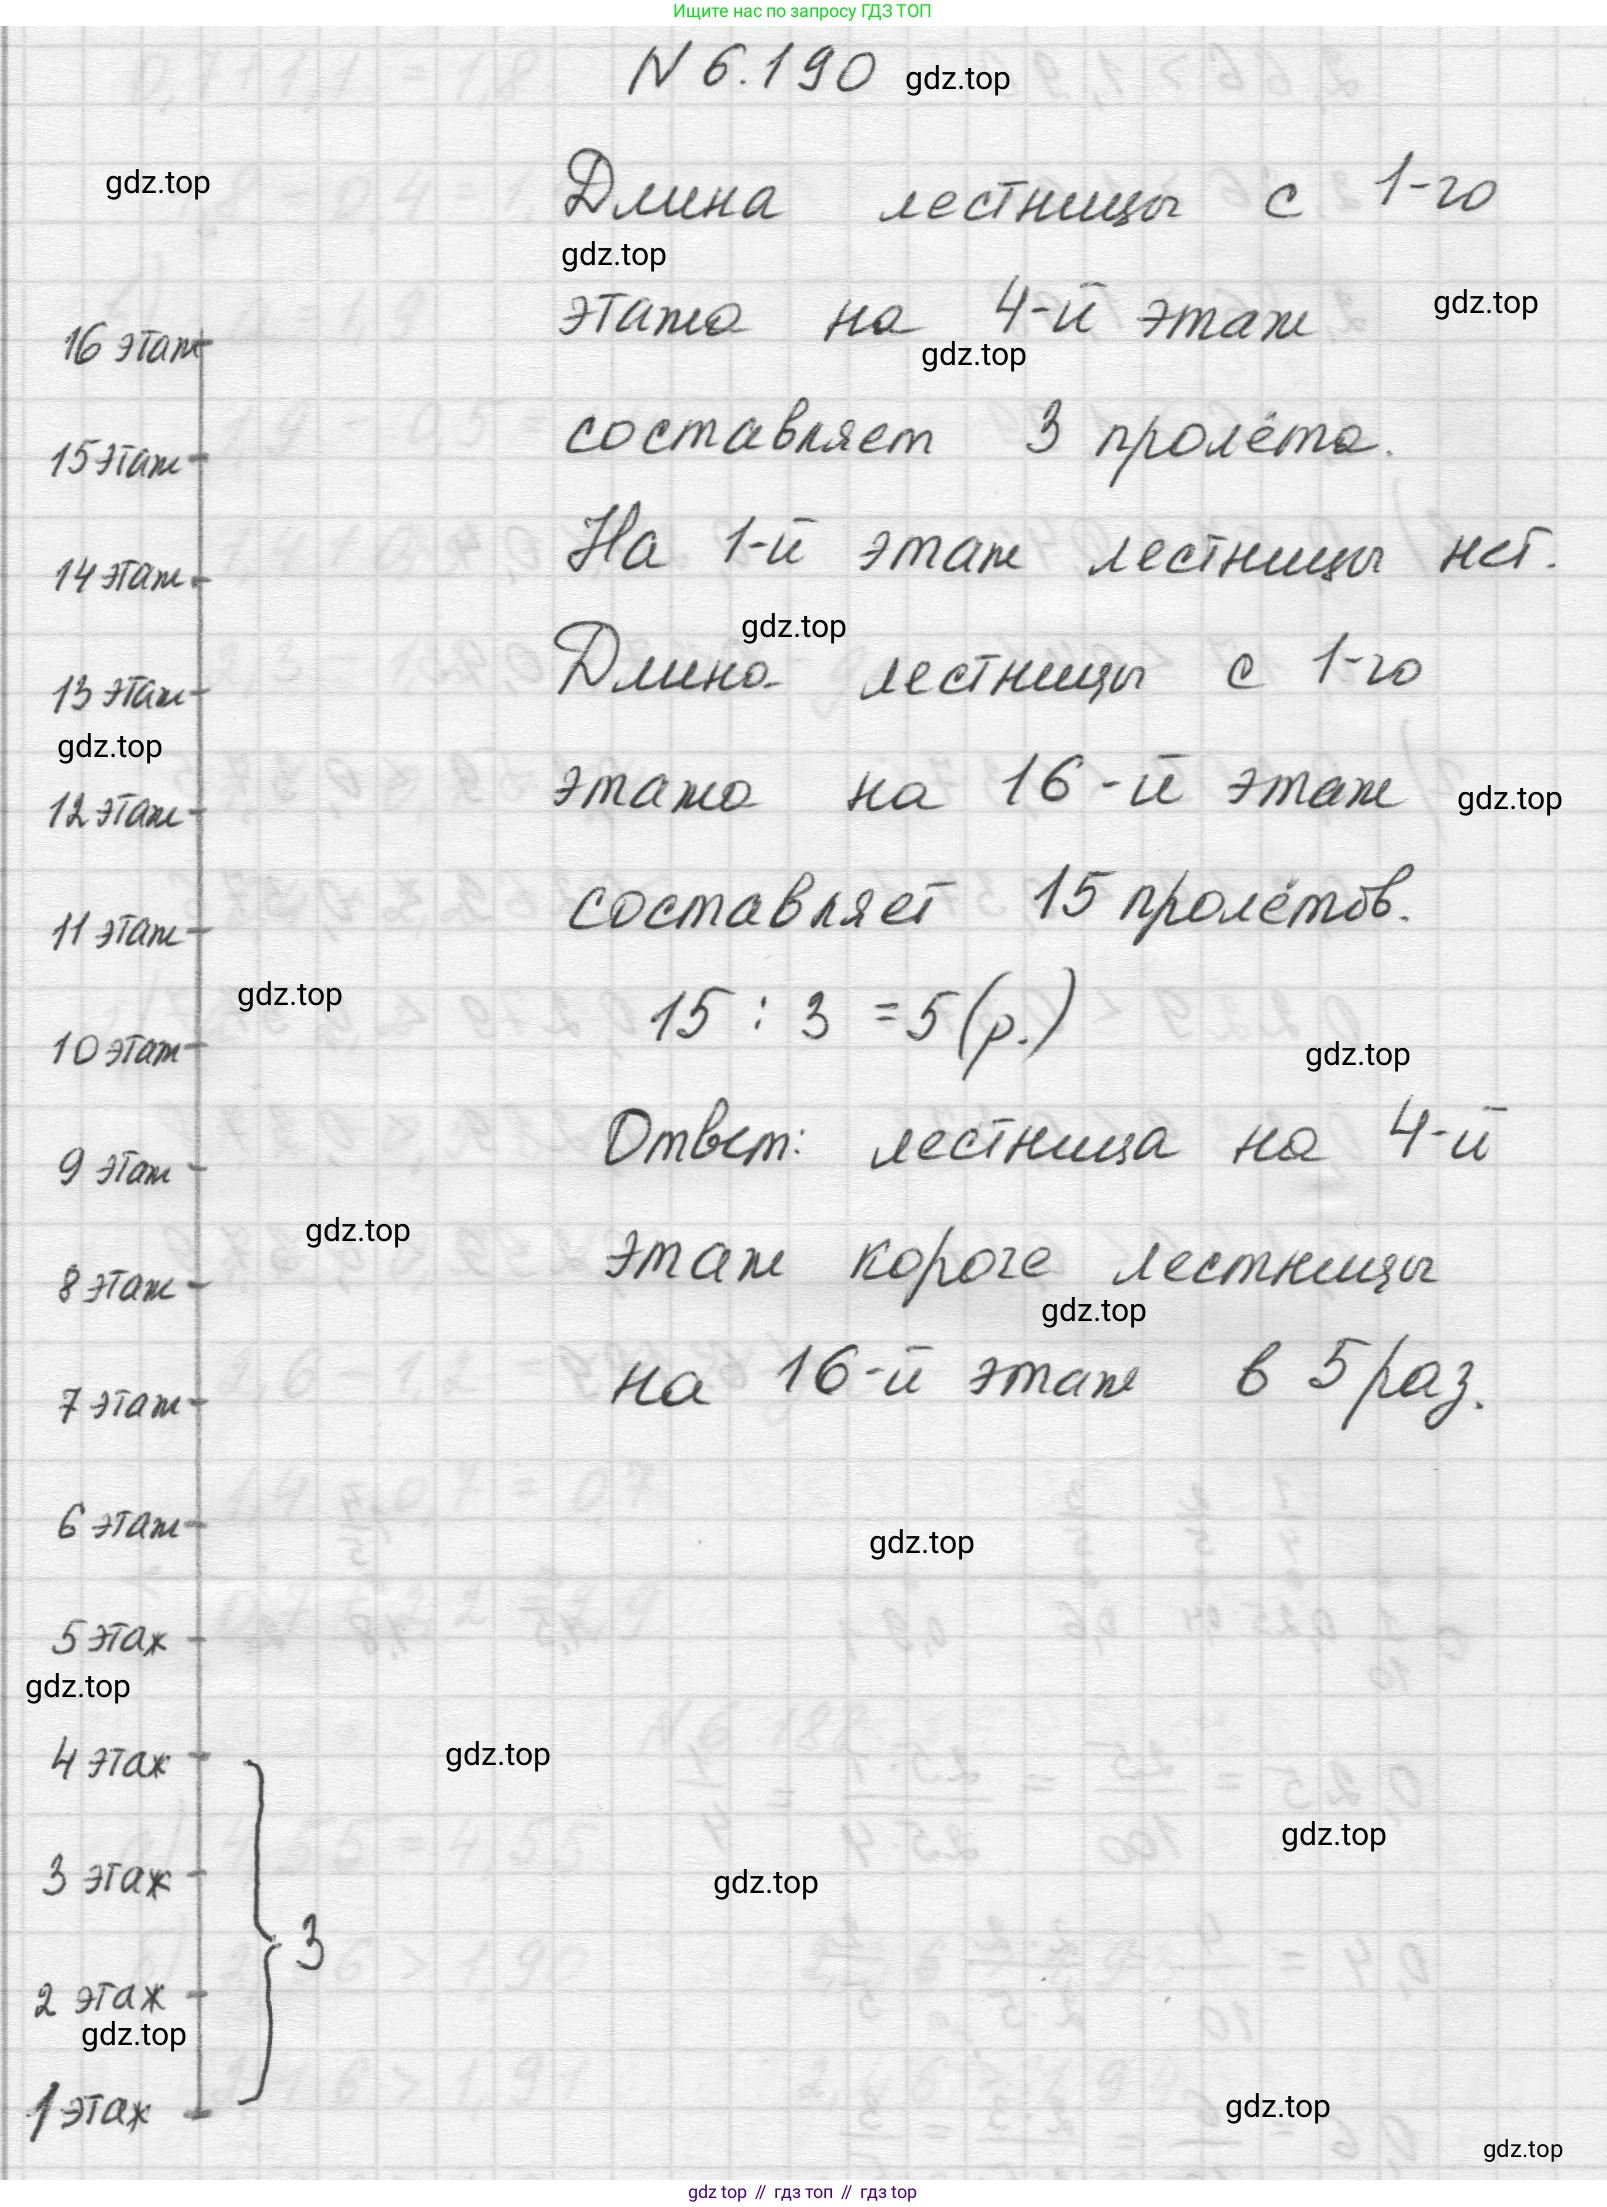 Ищите нас по запросу ГДЗ ТОП
N 6.190 gdz.top
gdz.top
Длина лестницы с 1-го
gdz.top
этажа на 4-й этаж
gdz.top
gdz.top
составляет 3 пролёта.
На 1-й этаж лестницы нет.
gdz.top
Длина лестницы с 1-го
этажа на 16-й этаж
gdz.top
составляет 15 пролётов.
15 : 3 = 5 (р.)
gdz.top
Ответ: лестница на 4-й
этаж короче лестницы
gdz.top
на 16-й этаж в 5 раз.
16 этаж
15 этаж
14 этаж
13 этаж
gdz.top
12 этаж
11 этаж
gdz.top
10 этаж
9 этаж
gdz.top
8 этаж
7 этаж
6 этаж
gdz.top
5 этаж
gdz.top
4 этаж
gdz.top
gdz.top
3 этаж
gdz.top
3
2 этаж
gdz.top
1 этаж
gdz.top
gdz.top
gdz top // гдз топ // гдз top